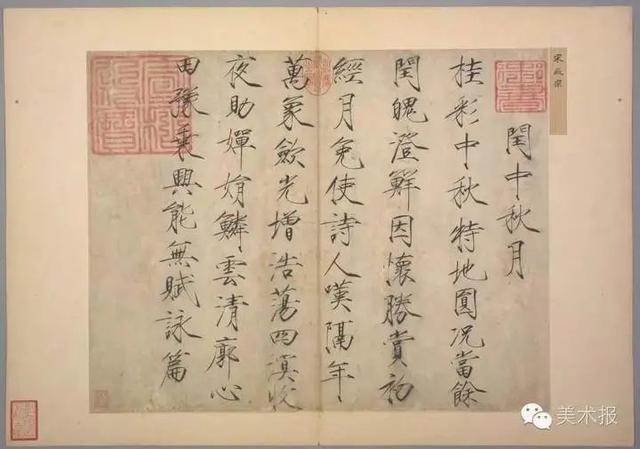 宋徽宗
閏中秋月
桂彩中秋特地圓况當餘
閏魄澄鮮因懷勝賞初
經月免使詩人嘆隔年
萬象歛光增浩蕩四溟收
夜助嬋娟鱗雲清廓心
田豫乘興能無賦詠篇
美术报